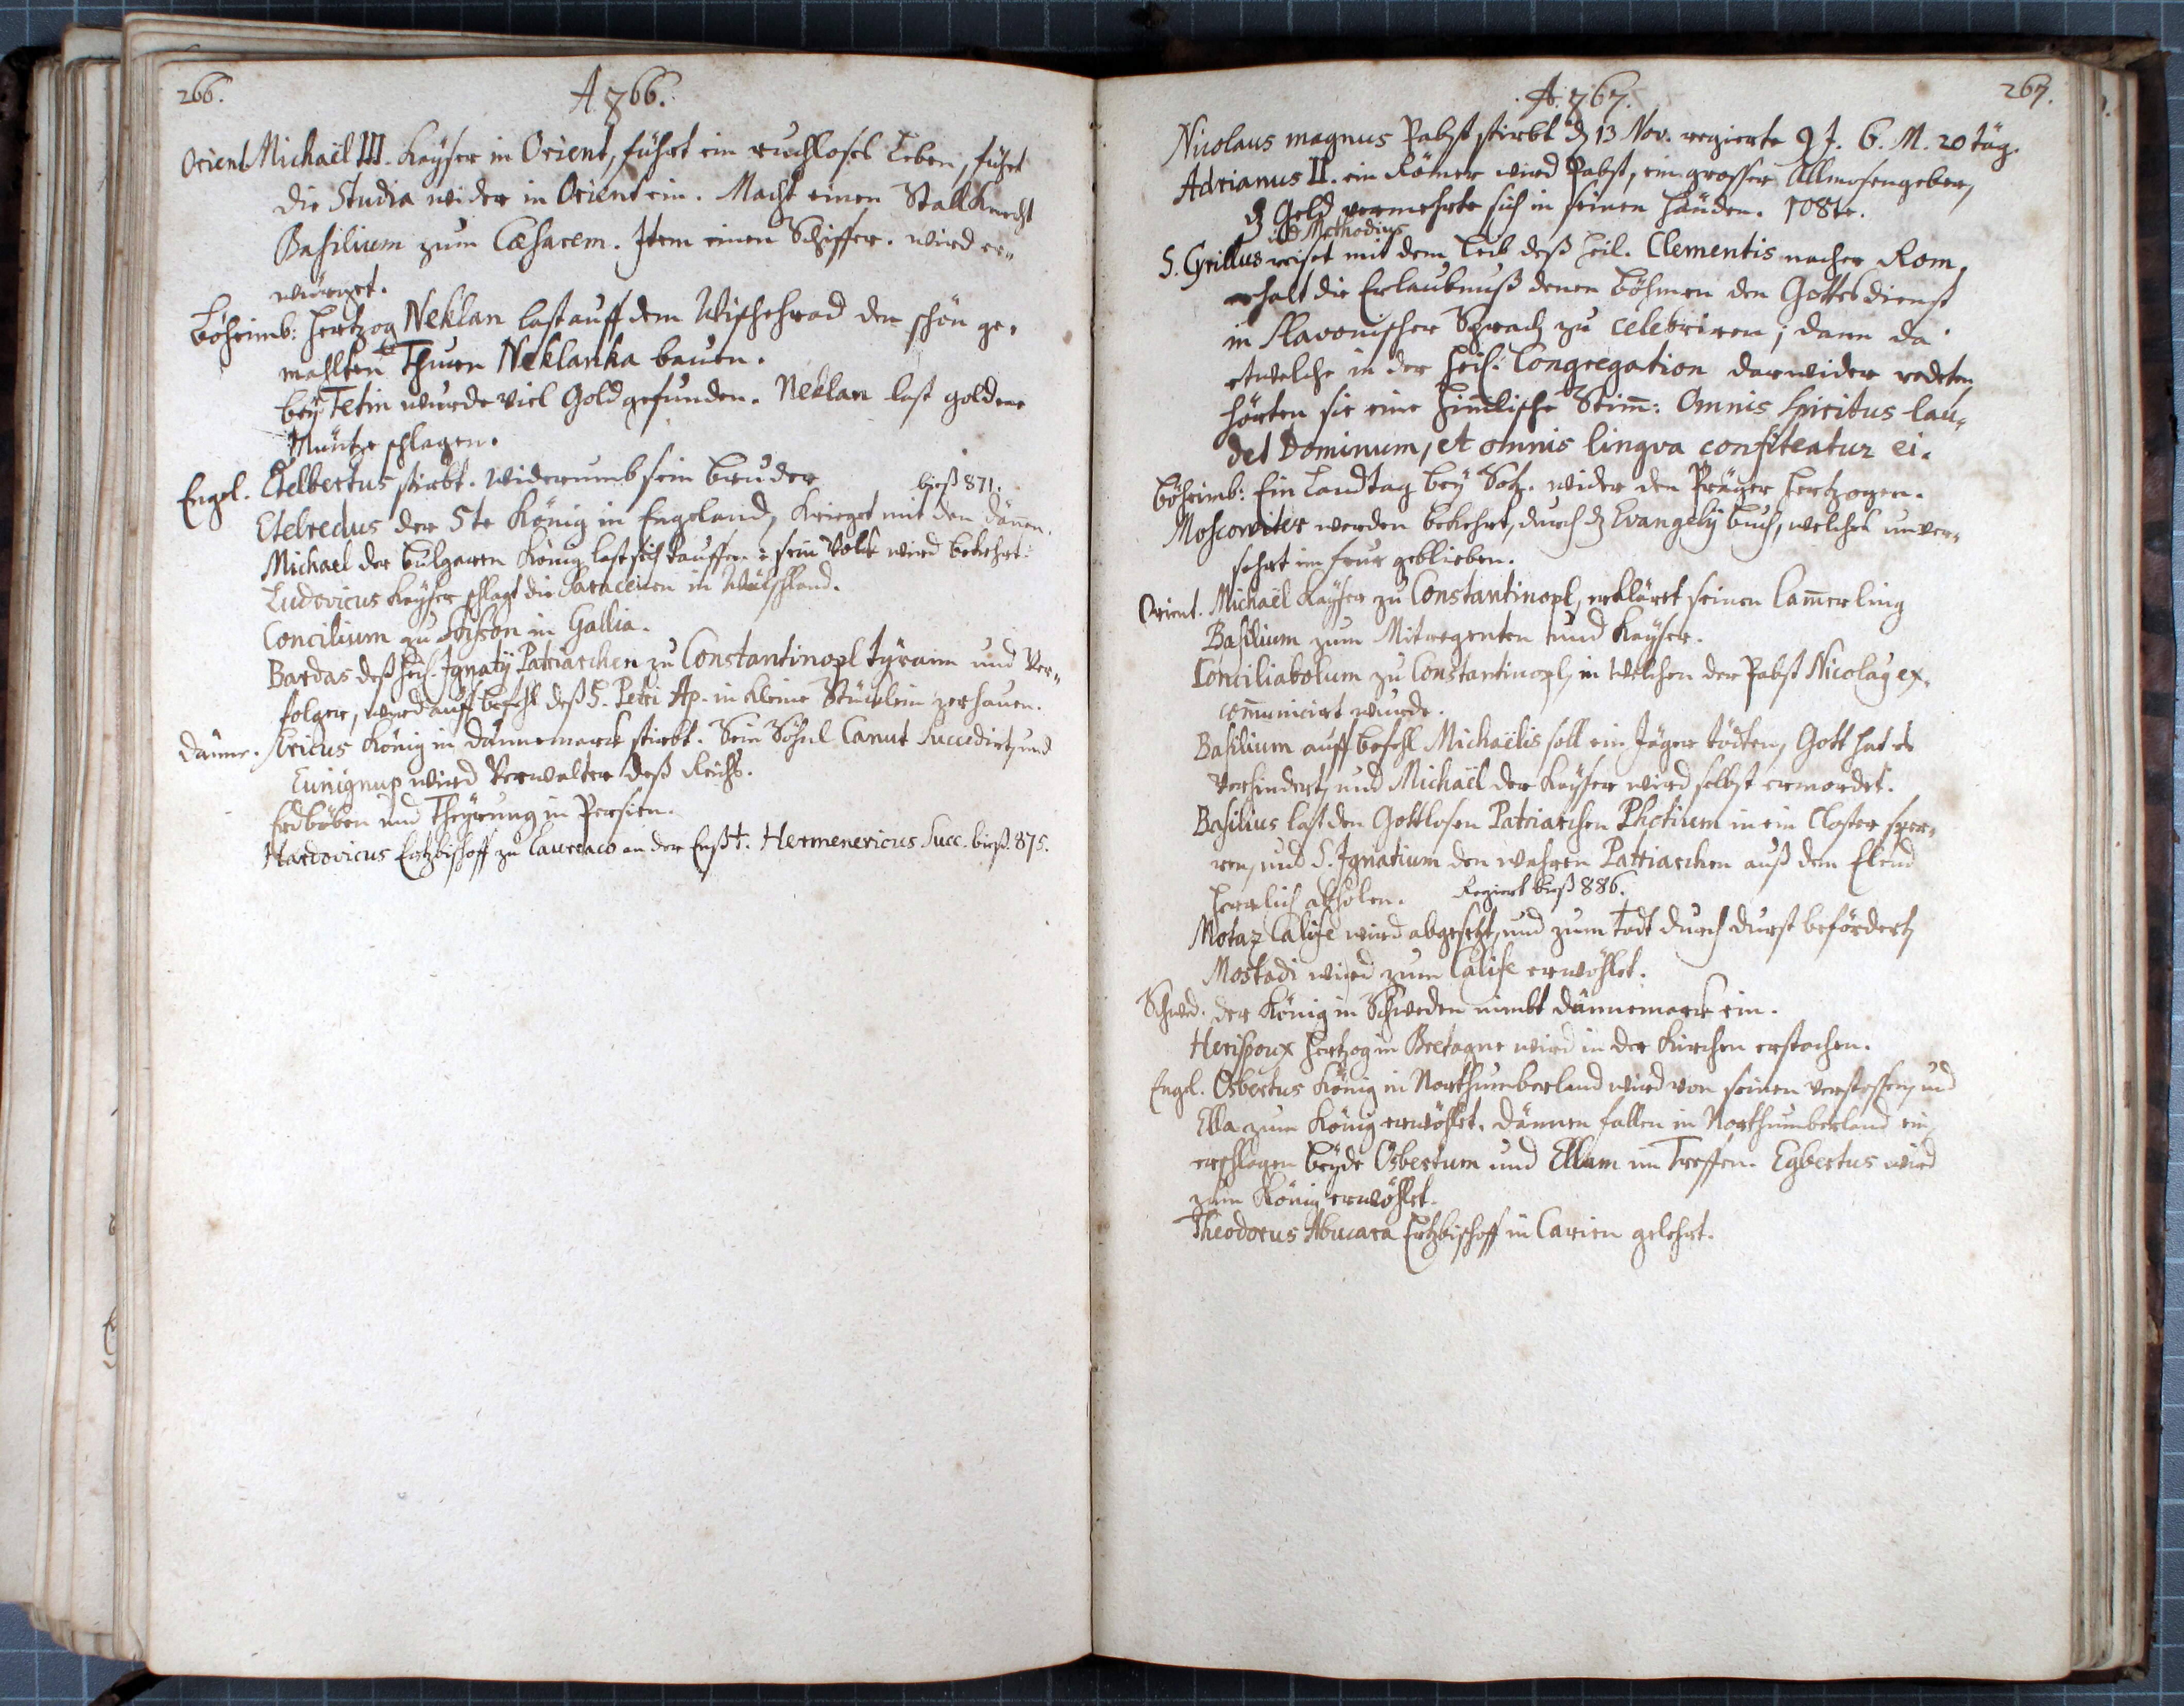 266.
A. 866.
Orient Michaël III. Kayser in Orient, führt ein ruchloses Leben, führt
die Studia wider in Orient ein. Macht einen StallKnecht
Basilium zum Cæsarem. Item einen Schiffer. wird er„
würget.
Böheimb: Hertzog Neklan last auff dem Wischehrad den schön ge„
mahlten Thurn Neklanka bauen.
bey Tetin wurde viel Gold gefunden. Neklan last goldene
Müntze schlagen.
Engel. Etelbertus stirbt. widerumb sein bruder
Etelredus der 5te König in Engeland, Krieget mit den Dänen. bieß 871.
Michael der Bulgaren König last sich tauffen: sein Volck wird bekehrt.
Ludovicus Kayser schlagt die Saracenen in Wälschland.
Concilium zu Soisson in Gallia.
Bardas deß heil. Ignatÿ Patriarchen zu Constantinopl tÿrann und Ver„
folger, wird auff befehl deß S. Petri Ap. in kleine Stücklein zerhauen.
Dänne. Ericus König in Dännemarck stirbt. Sein Söhnl Canut succedirt, und
Eunignup wird Verwalter deß Reichs.
Erdböben und Theÿrung in Persien.
Hardovicus Ertzbischoff zu Laureaco an der Enß †. Hermenericus Succ. bieß. 875.
A. 867.
267.
Nicolaus magnus Pabst stirbt dẽ 13 Nov. regierte 9 J. 6. M. 20 täg.
Adrianus II. ein Römer wird Pabst, ein grosser Allmosengeber,
dz Geld vermehrte sich in seinen Händen. 108te.
und Methodius
S. Cyrillus reiset mit dem Leib deß heil. Clementis nacher Rom,
erhalt die Erlaubnuß denen Böhmen den Gottesdienst
in Slavonischer Sprach zu celebriren; dann da
etwelche in der heil: Congregation darwider redeten
hörten sie eine Himlische Stim̃: Omnis Spiritus lau„
det Dominum, et omnis lingva confiteatur ei.
Böheimb: Ein Landtag bey Satz. wider den Präger Hertzogen.
Moscoviter werden bekehrt, durch dz Evangelÿ buch, welches unver„
sehrt im feur geblieben.
Orient. Michaël Kayser zu Constantinopl, erkläret seinen Cam̃erling
Basilium zum Mitregenten und Kayser.
Conciliabolum zu Constantinopl, in welchen der Pabst Nicolaq ex„
com̃unicirt wurde.
Basilium auff befehl Michaëlis soll ein Jäger tödten, Gott hat es
Verhindert, und Michaël der Kayser wird selbst ermordet.
Basilius last den Gottlosen Patriarchen Photium in ein Closter sper„
ren, und S. Ignatium den wahren Patriarchen auß dem Elend
herrlich abholen. Regiert bieß 886.
Motaz Calife wird abgesetzt, und zum todt durch durst befördert,
Mostadi wird zum Calife erwöhlet.
Schwed. der König in Schweden nimbt Dännemarck ein.
Herispoux Hertzog in Bretagne wird in der Kirchen erstochen.
Engel. Osbertus König in Northumberland wird von seinen verstossen, und
Ella zum König erwöhlet. Dännen fallen in Northumberland ein,
erschlagen beyde Osbertum und Ellam im Treffen. Egbertus wird
zum König erwöhlet.
Theodorus Abucara Ertzbischoff in Carien gelehrt.